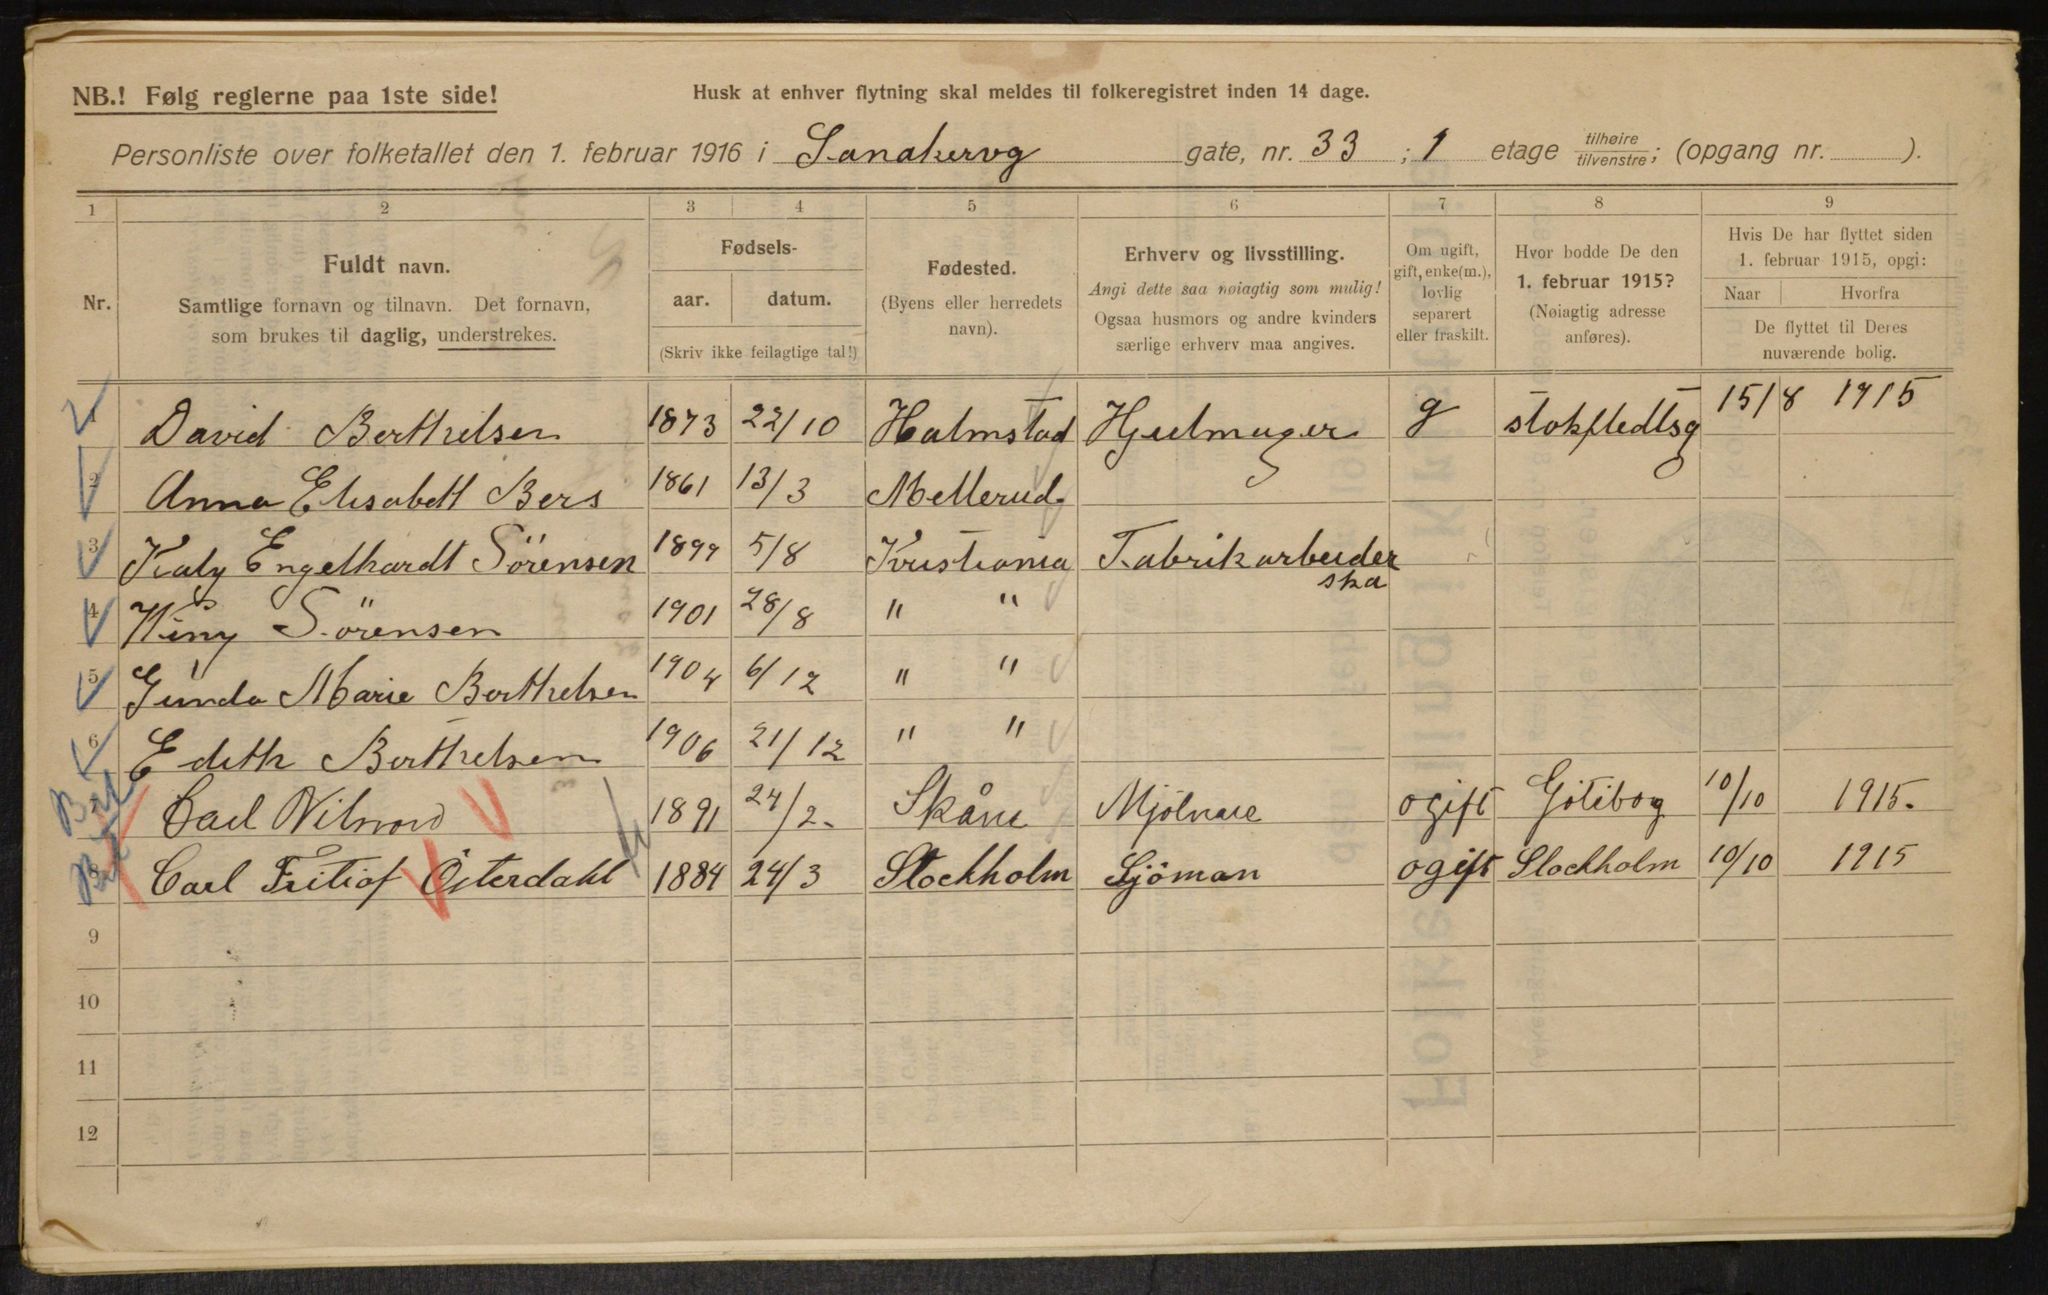 NB.! Følg reglerne paa 1ste side!
Husk at enhver flytning skal meldes til folkeregistret inden 14 dage.
Personliste over folketallet den 1. februar 1916 i Sanakervg gate, nr. 33 ; 1 etage tilhøire/tilvenstre; (opgang nr. ).
1 2 3 4 5 6 7 8 9
Nr.
Fuldt navn.
Samtlige fornavn og tilnavn. Det fornavn,
som brukes til daglig, understrekes.
Fødsels-
aar. datum.
(Skriv ikke feilagtige tal!)
Fødested.
(Byens eller herredets
navn).
Erhverv og livsstilling.
Angi dette saa nøiagtig som mulig!
Ogsaa husmors og andre kvinders
særlige erhverv maa angives.
Om ugift,
gift, enke(m.),
lovlig
separert
eller fraskilt.
Hvor bodde De den
1. februar 1915?
(Nøiagtig adresse
anføres).
Hvis De har flyttet siden
1. februar 1915, opgi:
Naar Hvorfra
De flyttet til Deres
nuværende bolig.
1 David Berthelsen 1873 22/10 Halmstad Hjulmager g stokfledtsg 15/8 1915
2 Anna Elisabett Bers 1861 13/3 Mellerud
3 Engelhardt Sörensen 1899 5/8 Kristiania Fabrikarbeider
ska
4 Sörensen 1901 28/8 " "
5 Gunda Marie Berthelsen 1904 6/12 " "
6 Edith Berthelsen 1906 21/12 " "
7 Carl 1891 24/2- Skåne Mjölnare ogift Göteborg 10/10 1915.
8 Carl Fritiof Österdahl 1884 24/3 Stockholm Sjöman ogift Stockholm 10/10 1915
9
10
11
12